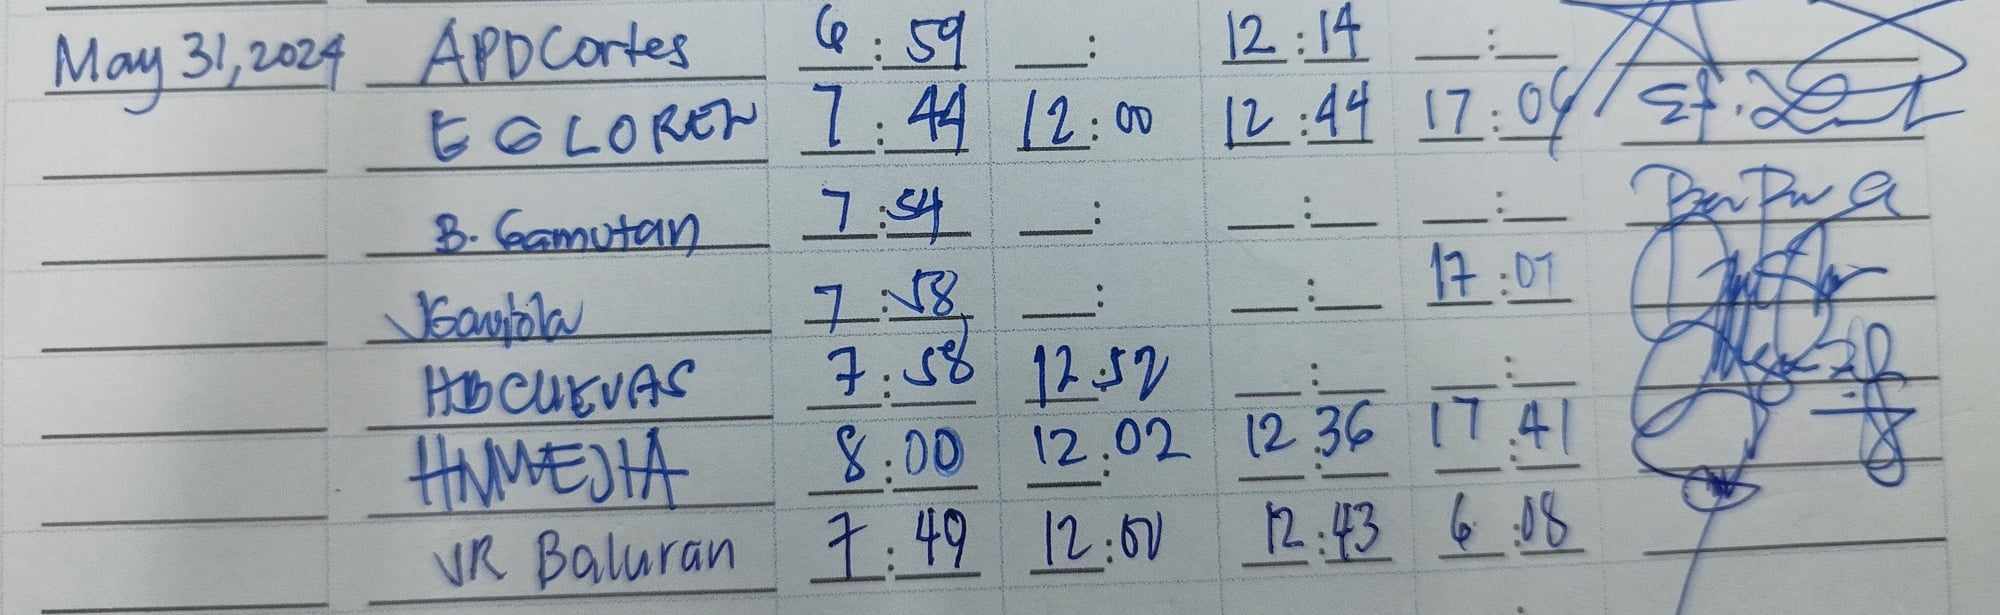 May 31, 2024 APDCortes 6:59 __: 12:14 __:__
E G LOREN 7:44 12:00 12:44 17:04
B. Gamutan 7:54 __: __:__ __:__
7:58 __: __:__ 17:07
HB CUEVAS 7:58 12:52 __:__ __:__
HNMEJIA 8:00 12:02 12:36 17:41
VR Baluran 7:49 12:00 12:43 6:08